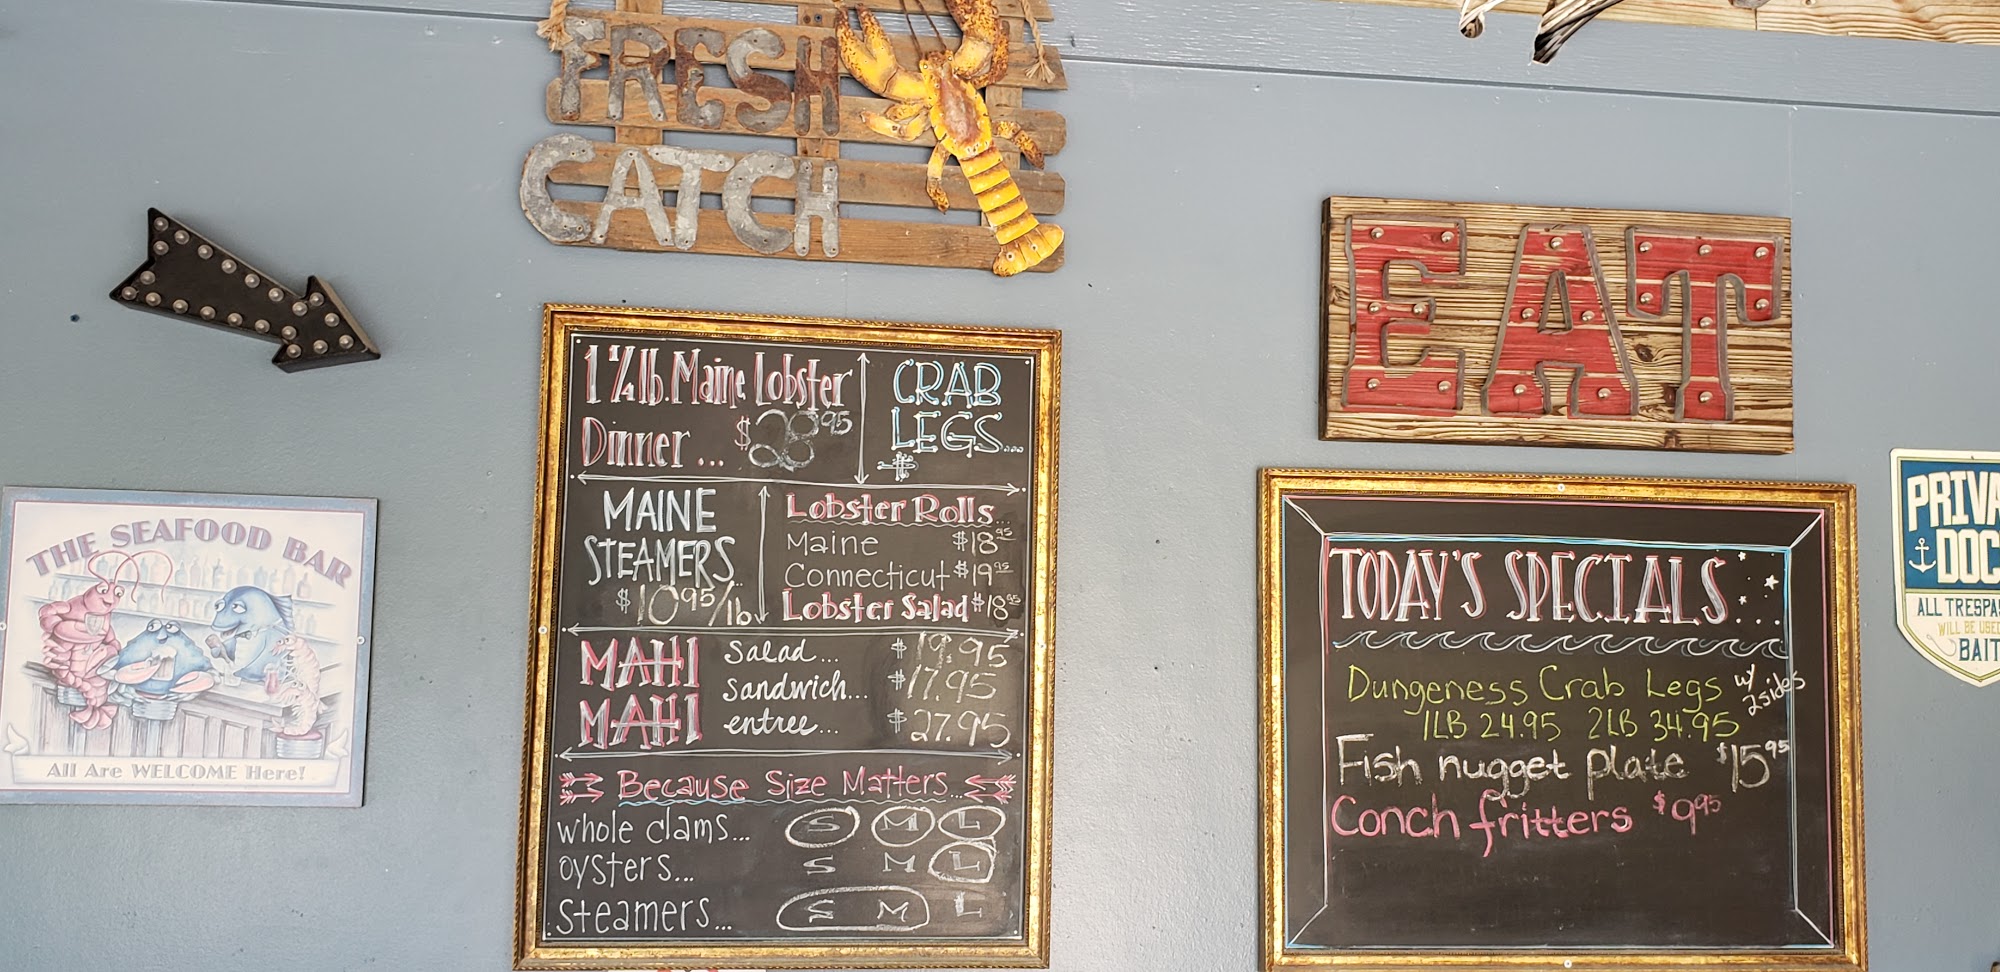 FRESH
CATCH
EAT
THE SEAFOOD BAR
All Are WELCOME Here!
1 1/4 lb. Maine Lobster
Dinner ... $28.95
CRAB
LEGS...
$
MAINE
STEAMERS...
$10.95/lb
Lobster Rolls...
Maine $18.95
Connecticut $19.95
Lobster Salad $18.95
MAHI
MAHI
salad... $19.95
sandwich... $17.95
entree... $27.95
Because Size Matters...
whole clams... S M L
oysters... S M L
steamers... S M L
TODAY'S SPECIALS...
Dungeness Crab Legs w/ 2sides
1LB 24.95 2LB 34.95
Fish nugget plate $15.95
Conch fritters $9.95
PRIVA
DOC
ALL TRESPA
WILL BE USE
BAIT